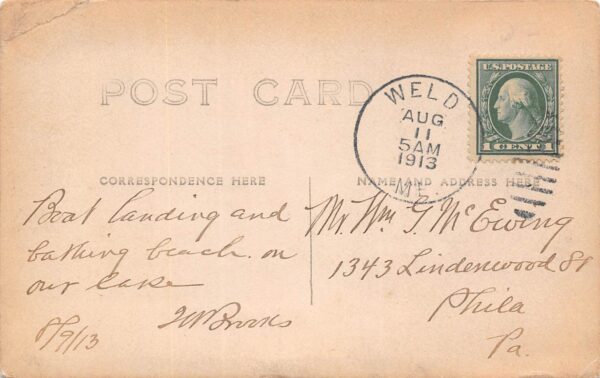 POST CARD
WELD
AUG
11
5AM
1913
ME.
U.S. POSTAGE
1 CENT 1
CORRESPONDENCE HERE
NAME AND ADDRESS HERE
Boat landing and
bathing beach on
our lake
8/9/13
Brooks
Mr. Wm. G. McEwing
1343 Lindenwood St
Phila
Pa.